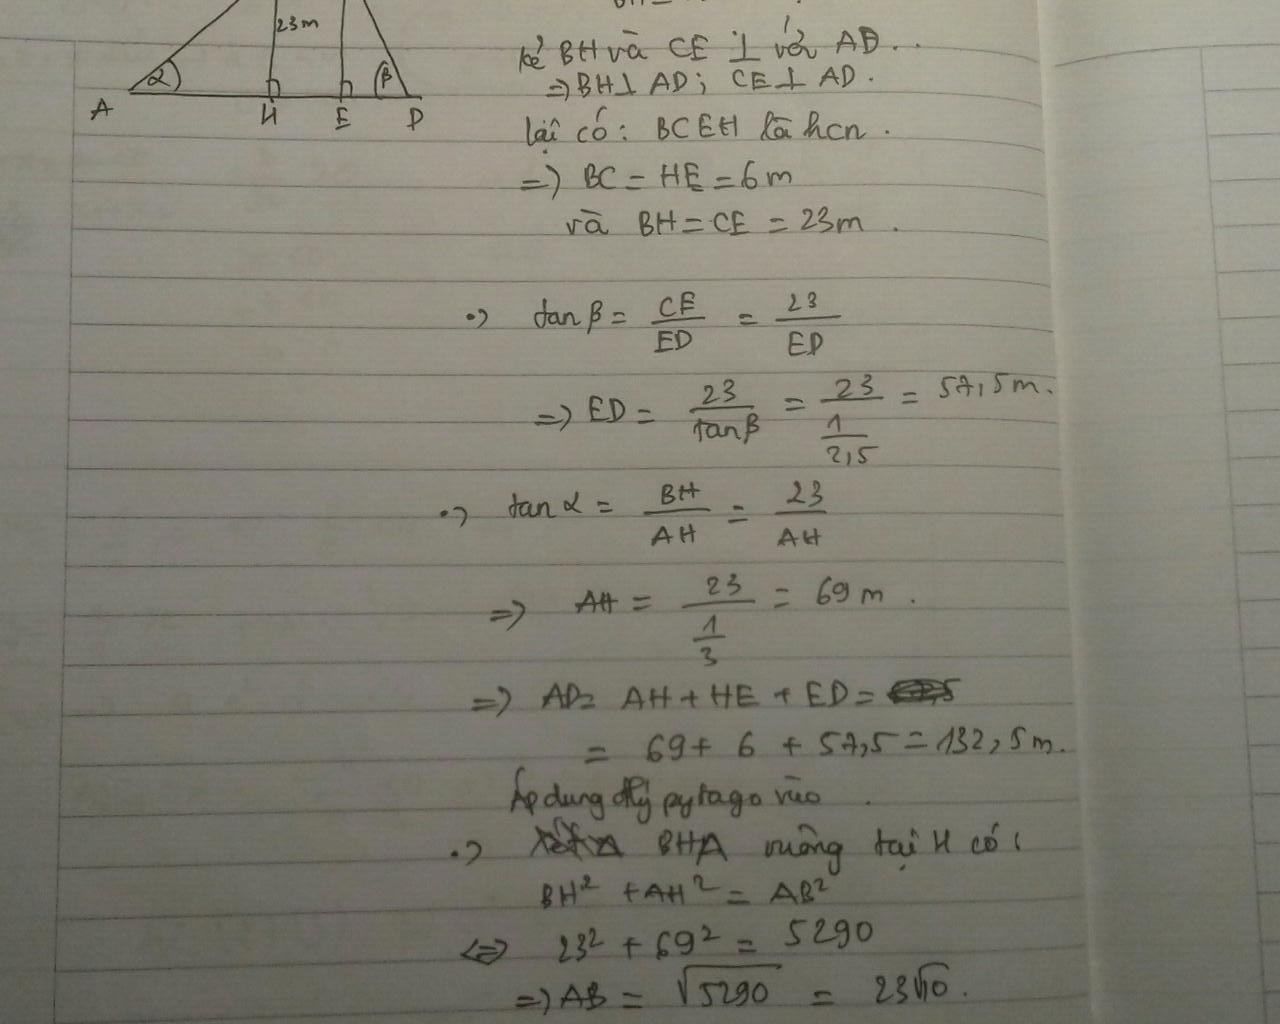 23m
α
β
A
H
E
D
kẻ BH và CE ⊥ với AD..
=> BH ⊥ AD; CE ⊥ AD.
lại có: BCEH là hcn.
=> BC = HE = 6m
và BH = CE = 23m.
•> tan β = CE/ED = 23/ED
=> ED = 23/tan β = 23/(1/2,5) = 57,5 m.
•> tan α = BH/AH = 23/AH
=> AH = 23/(1/3) = 69 m.
=> AD = AH + HE + ED =
= 69 + 6 + 57,5 = 132,5 m.
Áp dụng đlý pytago vào.
•> BHA vuông tại H có:
BH² + AH² = AB²
<=> 23² + 69² = 5290
=> AB = √5290 = 23√10.